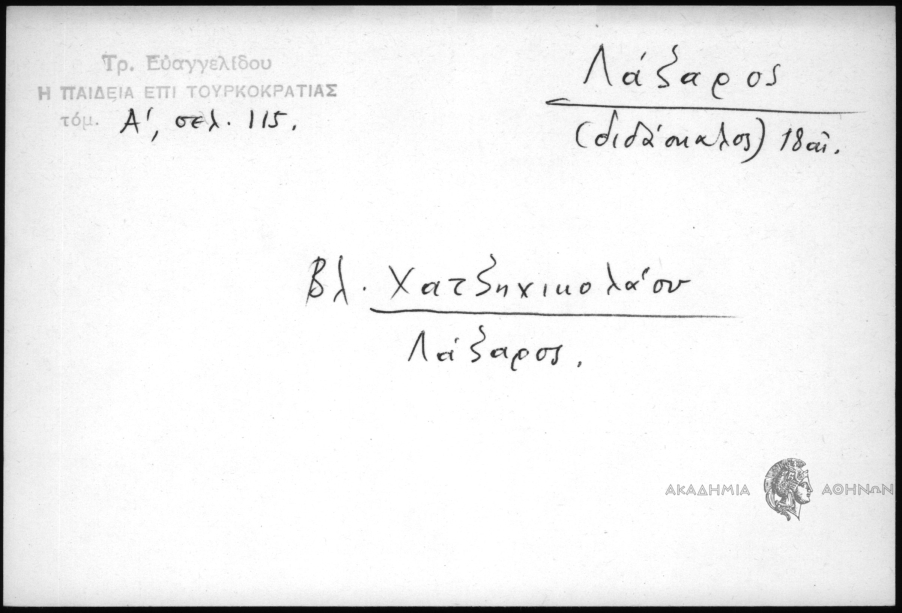 Τρ. Εὐαγγελίδου
Η ΠΑΙΔΕΙΑ ΕΠΙ ΤΟΥΡΚΟΚΡΑΤΙΑΣ
τόμ. Α', σελ. 115.
Λάζαρος
(διδάσκαλος) 18 αἰ.
Βλ. Χατζηνικολάου
Λάζαρος.
ΑΚΑΔΗΜΙΑ ΑΘΗΝΩΝ